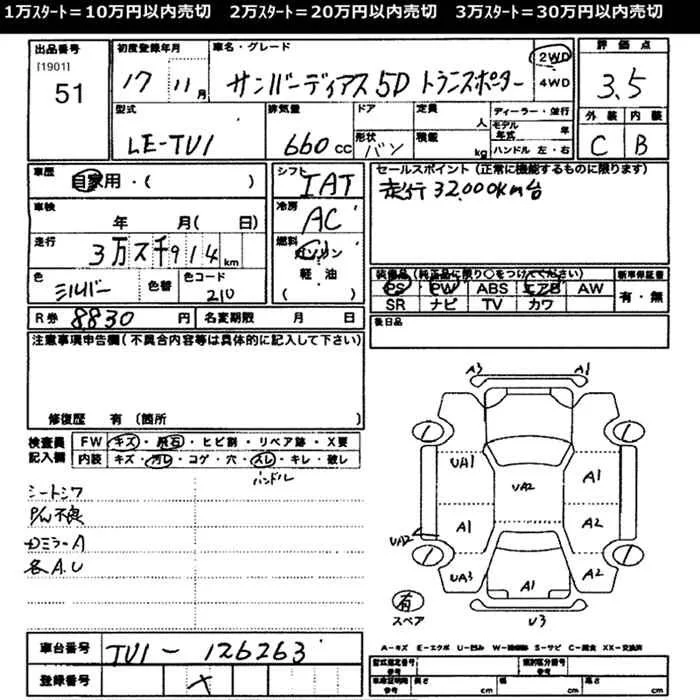 1万ｽﾀｰﾄ＝10万円以内売切　2万ｽﾀｰﾄ＝20万円以内売切　3万ｽﾀｰﾄ＝30万円以内売切
出品番号 初度登録年月 車名・グレード 2WD 評価点
[1901]
51 17 11月 サンバーディアス 5D トランスポーター 4WD 3.5
型式 排気量 ドア 定員 人 ディーラー・並行 外装 内装
モデル年式 年
LE-TV1 660cc 形状 バン 積載 kg ハンドル 左・右 C B
車歴 自家用・( ) シフト IAT セールスポイント (正常に機能するものに限ります)
走行32,000km台
車検 年 月( 日) 冷房 AC
走行 3万2千914km 燃料 ガソリン
軽油
( )
色 シルバー 色替 色コード 210
装備品 (純正品に限り○をつけてください) 新車保証書
PS PW ABS エアB AW 有・無
SR ナビ TV カワ
R券 8830円 名変期限 月 日 後日品
注意事項申告欄 (不具合内容等は具体的に記入して下さい)
修復歴 有 (箇所 )
検査員記入欄 FW キズ・飛石・ヒビ割・リペア跡・X要
内装 キズ・汚レ・コゲ・穴・スレ・キレ・破レ
ハンドル
シートシワ
P/W不良
各A.U
A3 A1
UA1 UA2 A1
A1 A2
UA2
UA3 A1 A2
U3
有
スペア
A-キズ E-エクボ U-凹み W-補修跡 S-サビ C-腐食 XX-交換済
車台番号 TV1-126263
登録番号 ×
型式指定番号 類別区分番号
車庫証明用参考 長さ cm 幅 cm 高さ cm